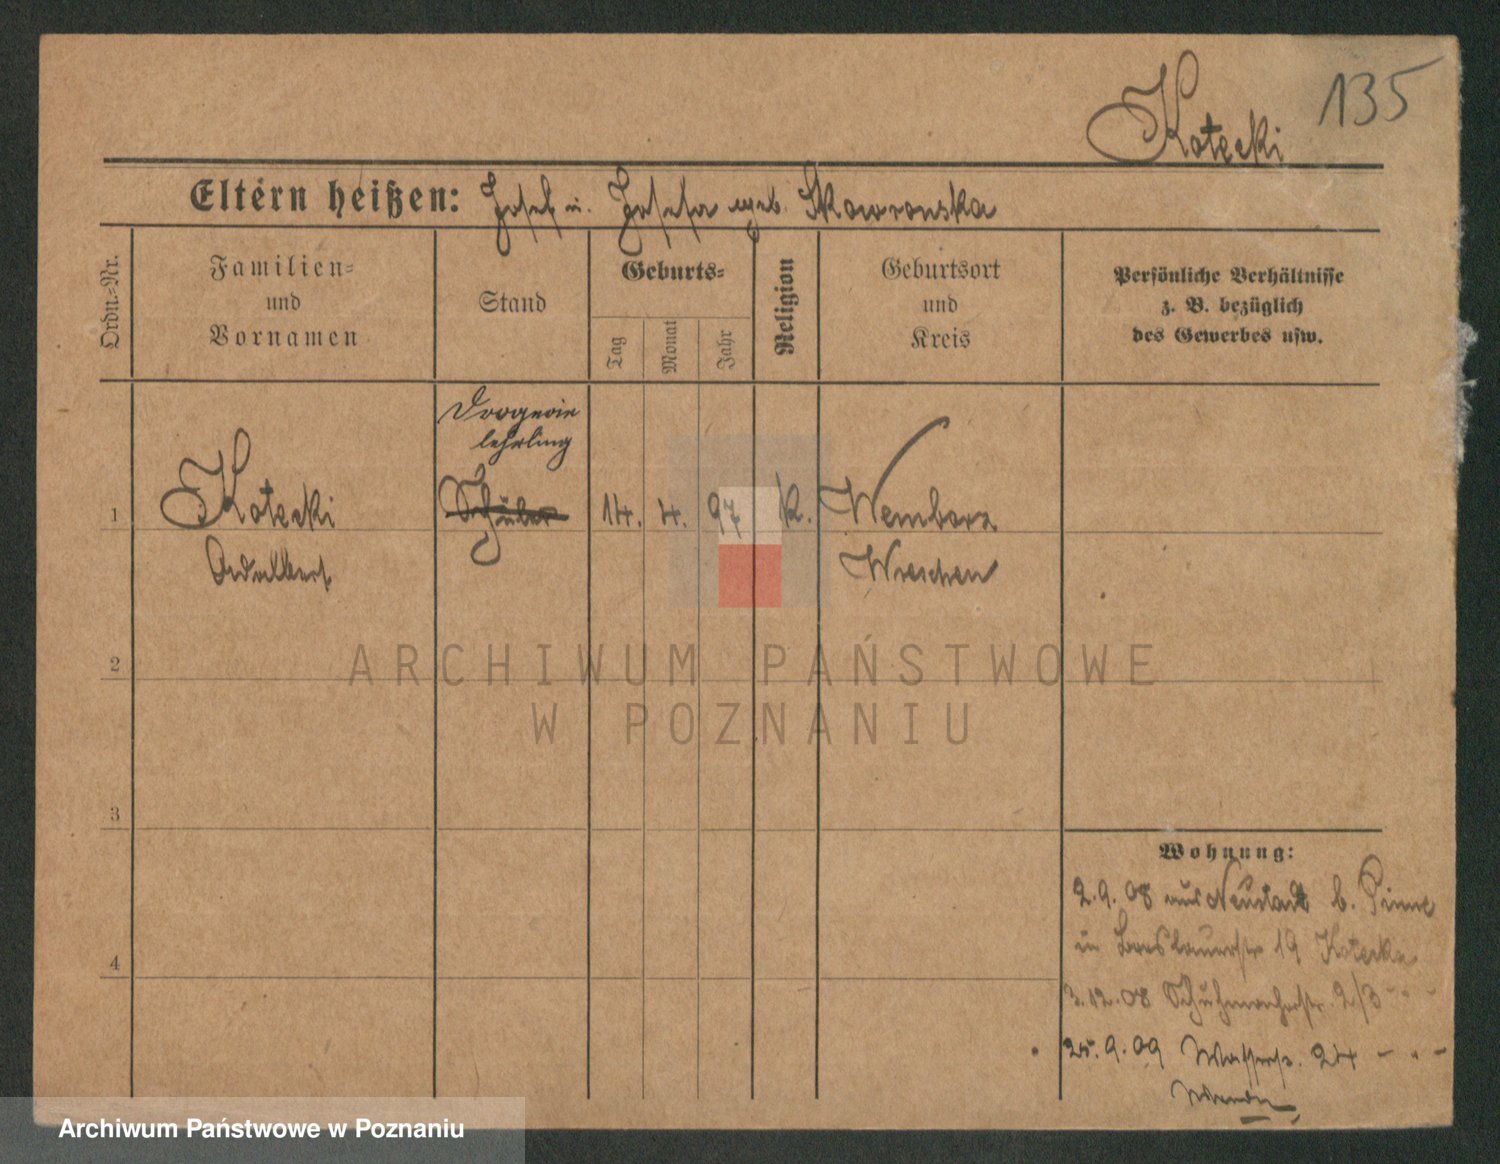 Kotecki 135
Eltern heißen: Josef u. Josefa geb. Skowronska
Ordn.-Nr.
Familien-
und
Vornamen
Stand
Geburts-
Tag
Monat
Jahr
Religion
Geburtsort
und
Kreis
Persönliche Verhältnisse
z. B. bezüglich
des Gewerbes usw.
Drogerie
lehrling
1 Kotecki Schüler 14. 4. 97 K. Wemborz
Adalbert Wreschen
2
3
4
Wohnung:
2.9.08 aus Neustadt b. Pinne
in Breslauerstr 19 Kotecka
3.12.08 Schuhmacherstr. 2/3 - " -
25.9.09 Wasserstr. 24 - " -
ARCHIWUM PAŃSTWOWE
W POZNANIU
Archiwum Państwowe w Poznaniu